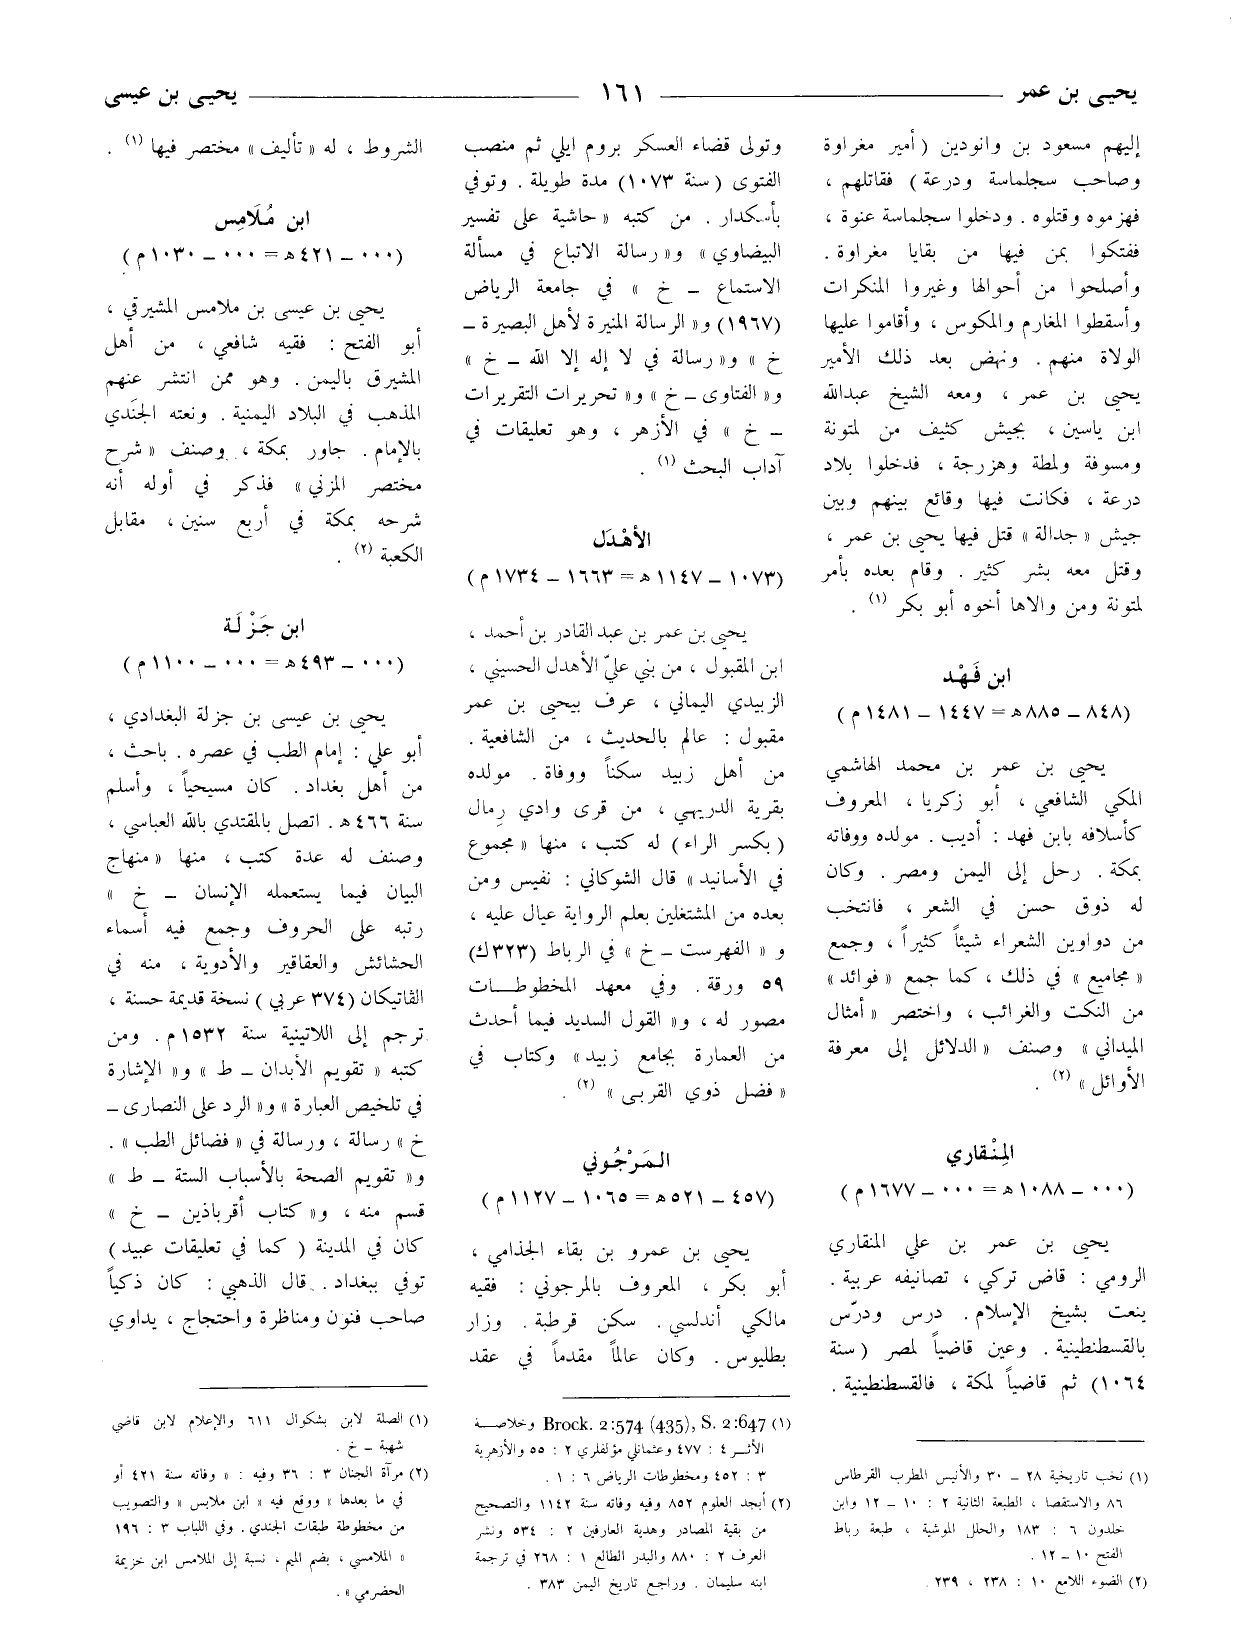 يحيى بن عمر ١٦١ يحيى بن عيسى
إليهم مسعود بن وانودين (أمير مغراوة
وصاحب سجلماسة ودرعة) فقاتلهم ،
فهزموه وقتلوه . ودخلوا سجلماسة عنوة ،
ففتكوا بمن فيها من بقايا مغراوة .
وأصلحوا من أحوالها وغيروا المنكرات
وأسقطوا المغارم والمكوس ، وأقاموا عليها
الولاة منهم . ونهض بعد ذلك الأمير
يحيى بن عمر ، ومعه الشيخ عبدالله
ابن ياسين ، بجيش كثيف من لمتونة
ومسوفة ولمطة وهزرجة ، فدخلوا بلاد
درعة ، فكانت فيها وقائع بينهم وبين
جيش « جدالة » قتل فيها يحيى بن عمر ،
وقتل معه بشر كثير . وقام بعده بأمر
لمتونة ومن والاها أخوه أبو بكر (١) .
ابن فَهْد
(٨٤٨ – ٨٨٥ ه = ١٤٤٧ – ١٤٨١ م)
يحيى بن عمر بن محمد الهاشمي
المكي الشافعي ، أبو زكريا ، المعروف
كأسلافه بابن فهد : أديب . مولده ووفاته
بمكة . رحل إلى اليمن ومصر . وكان
له ذوق حسن في الشعر ، فانتخب
من دواوين الشعراء شيئاً كثيراً ، وجمع
« مجاميع » في ذلك ، كما جمع « فوائد »
من النكت والغرائب ، واختصر « أمثال
الميداني » وصنف « الدلائل إلى معرفة
الأوائل » (٢) .
المِنْقاري
(٠٠٠ – ١٠٨٨ ه = ٠٠٠ – ١٦٧٧ م)
يحيى بن عمر بن علي المنقاري
الرومي : قاض تركي ، تصانيفه عربية .
ينعت بشيخ الإسلام . درس ودرّس
بالقسطنطينية . وعين قاضياً لمصر (سنة
١٠٦٤) ثم قاضياً لمكة ، فالقسطنطينية .
(١) نخب تاريخية ٢٨ – ٣٠ والأنيس المطرب القرطاس
٨٦ والاستقصا ، الطبعة الثانية ٢ : ١٠ – ١٢ وابن
خلدون ٦ : ١٨٣ والحلل الموشية ، طبعة رباط
الفتح ١٠ – ١٢ .
(٢) الضوء اللامع ١٠ : ٢٣٨ ، ٢٣٩ .
وتولى قضاء العسكر بروم ايلي ثم منصب
الفتوى (سنة ١٠٧٣) مدة طويلة . وتوفي
بأسكدار . من كتبه « حاشية على تفسير
البيضاوي » و« رسالة الاتباع في مسألة
الاستماع – خ » في جامعة الرياض
(١٩٦٧) و« الرسالة المنيرة لأهل البصيرة –
خ » و« رسالة في لا إله إلا الله – خ »
و« الفتاوى – خ » و« تحريرات التقريرات
– خ » في الأزهر ، وهو تعليقات في
آداب البحث (١) .
الأَهْدَل
(١٠٧٣ – ١١٤٧ ه = ١٦٦٣ – ١٧٣٤ م)
يحيى بن عمر بن عبد القادر بن أحمد ،
ابن المقبول ، من بني عليّ الأهدل الحسيني ،
الزبيدي اليماني ، عرف بيحيى بن عمر
مقبول : عالم بالحديث ، من الشافعية .
من أهل زبيد سكناً ووفاة . مولده
بقرية الدريهي ، من قرى وادي رِمال
(بكسر الراء) له كتب ، منها « مجموع
في الأسانيد » قال الشوكاني : نفيس ومن
بعده من المشتغلين بعلم الرواية عيال عليه ،
و « الفهرست – خ » في الرباط (٣٢٣ك)
٥٩ ورقة . وفي معهد المخطوطات
مصور له ، و« القول السديد فيما أحدث
من العمارة بجامع زبيد » وكتاب في
« فضل ذوي القربى » (٢) .
المَرْجُوني
(٤٥٧ – ٥٢١ ه = ١٠٦٥ – ١١٢٧ م)
يحيى بن عمرو بن بقاء الجذامي ،
أبو بكر ، المعروف بالمرجوني : فقيه
مالكي أندلسي . سكن قرطبة . وزار
بطليوس . وكان عالماً مقدماً في عقد
(١) Brock. 2:574 (435), S. 2:647 وخلاصة
الأثر ٤ : ٤٧٧ وعثمانلي مؤلفلري ٢ : ٥٥ والأزهرية
٣ : ٤٥٢ ومخطوطات الرياض ٦ : ١ .
(٢) أبجد العلوم ٨٥٢ وفيه وفاته سنة ١١٤٢ والتصحيح
من بقية المصادر وهدية العارفين ٢ : ٥٣٤ ونشر
العرف ٢ : ٨٨٠ والبدر الطالع ١ : ٢٦٨ في ترجمة
ابنه سليمان . وراجع تاريخ اليمن ٣٨٣ .
الشروط ، له « تأليف » مختصر فيها (١) .
ابن مُلَامِس
(٠٠٠ – ٤٢١ ه = ٠٠٠ – ١٠٣٠ م)
يحيى بن عيسى بن ملامس المشيرقي ،
أبو الفتح : فقيه شافعي ، من أهل
المشيرق باليمن . وهو ممن انتشر عنهم
المذهب في البلاد اليمنية . ونعته الجَنَدي
بالإمام . جاور بمكة ، وصنف « شرح
مختصر المزني » فذكر في أوله أنه
شرحه بمكة في أربع سنين ، مقابل
الكعبة (٢) .
ابن جَزْلَة
(٠٠٠ – ٤٩٣ ه = ٠٠٠ – ١١٠٠ م)
يحيى بن عيسى بن جزلة البغدادي ،
أبو علي : إمام الطب في عصره . باحث ،
من أهل بغداد . كان مسيحياً ، وأسلم
سنة ٤٦٦ ه . اتصل بالمقتدي بالله العباسي ،
وصنف له عدة كتب ، منها « منهاج
البيان فيما يستعمله الإنسان – خ »
رتبه على الحروف وجمع فيه أسماء
الحشائش والعقاقير والأدوية ، منه في
الڤاتيكان (٣٧٤ عربي) نسخة قديمة حسنة ،
ترجم إلى اللاتينية سنة ١٥٣٢ م . ومن
كتبه « تقويم الأبدان – ط » و« الإشارة
في تلخيص العبارة » و« الرد على النصارى –
خ » رسالة ، ورسالة في « فضائل الطب » .
و« تقويم الصحة بالأسباب الستة – ط »
قسم منه ، و« كتاب أقرباذين – خ »
كان في المدينة (كما في تعليقات عبيد)
توفي ببغداد . قال الذهبي : كان ذكياً
صاحب فنون ومناظرة واحتجاج ، يداوي
(١) الصلة لابن بشكوال ٦١١ والإعلام لابن قاضي
شهبة – خ .
(٢) مرآة الجنان ٣ : ٣٦ وفيه : « وفاته سنة ٤٢١ أو
في ما بعدها » ووقع فيه « ابن ملابس » والتصويب
من مخطوطة طبقات الجندي . وفي اللباب ٣ : ١٩٦
« الملامسي ، بضم الميم ، نسبة إلى الملامس ابن خزيمة
الحضرمي » .